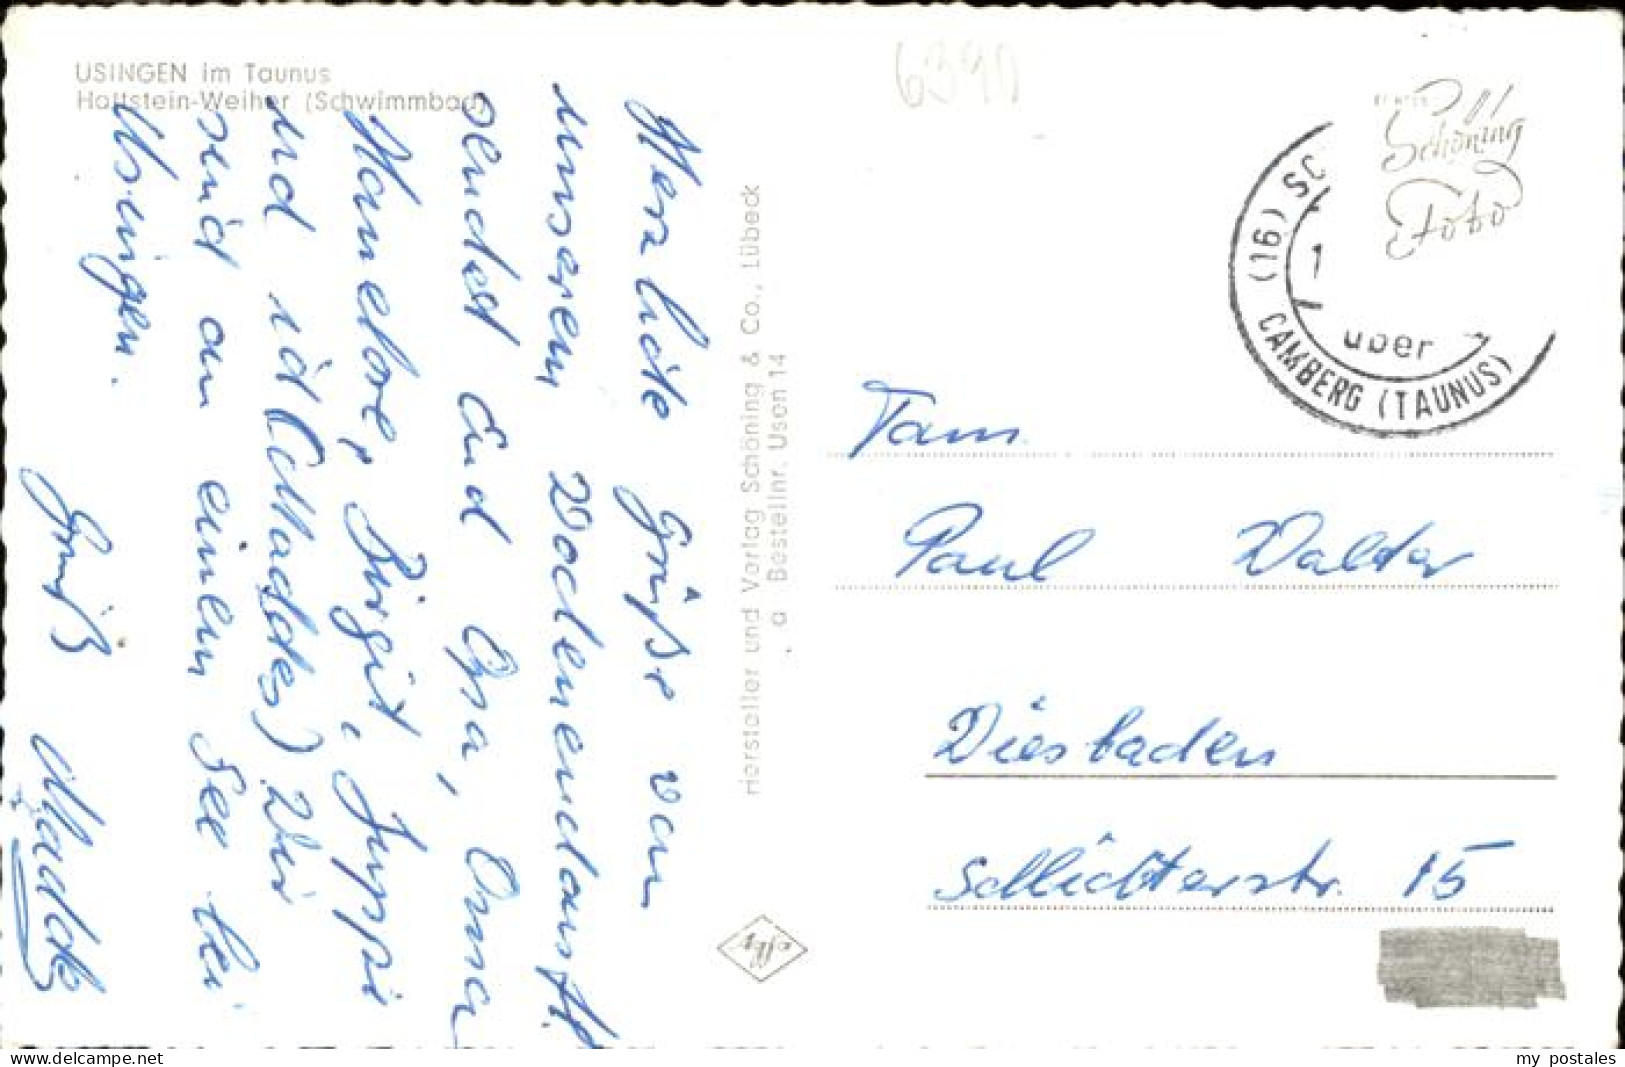 USINGEN im Taunus
Hattstein-Weiher (Schwimmbad)
6390
Herzliche Grüße von
unserem Wochenendausfl.
sendet Eud Opa, Oma
Hannelore, Birgit, Juppi
und ich (Maddes) Wir
sind an einem See bei
Usingen.
Gruß Maddes
Hersteller und Verlag Schöning & Co., Lübeck
a Bestellnr. Uson 14
Schöning
Foto
(16) SC
1
über
CAMBERG (TAUNUS)
Fam.
Paul Walter
Wiesbaden
Schlichterstr. 15
my postales
www.delcampe.net